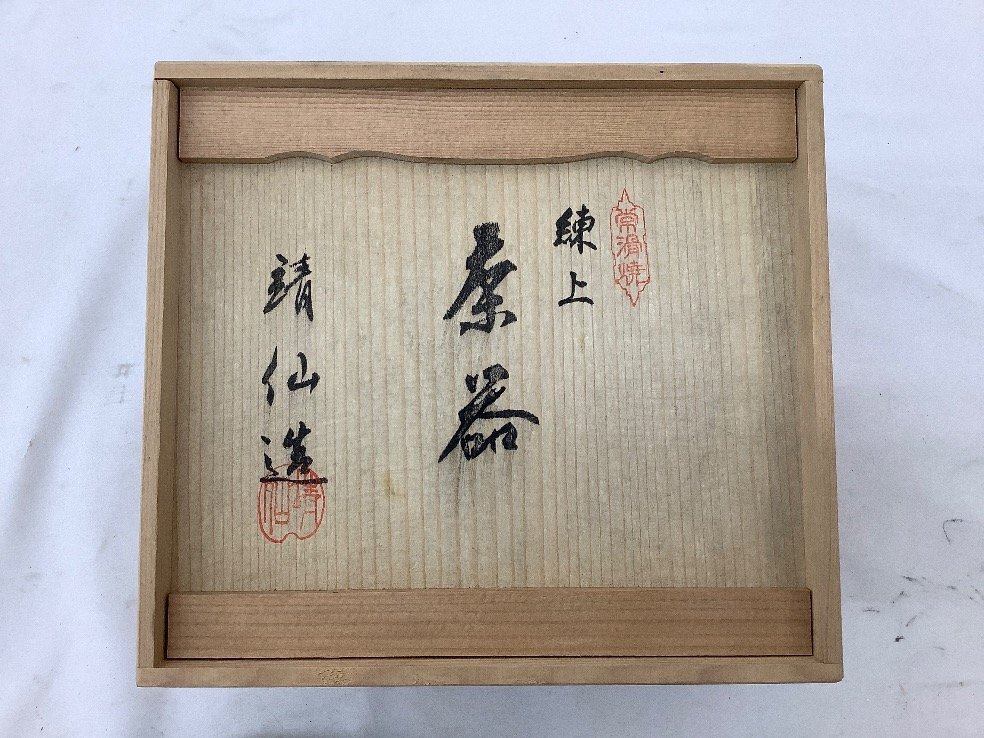 常滑焼
練上
茶器
靖仙造
靖仙